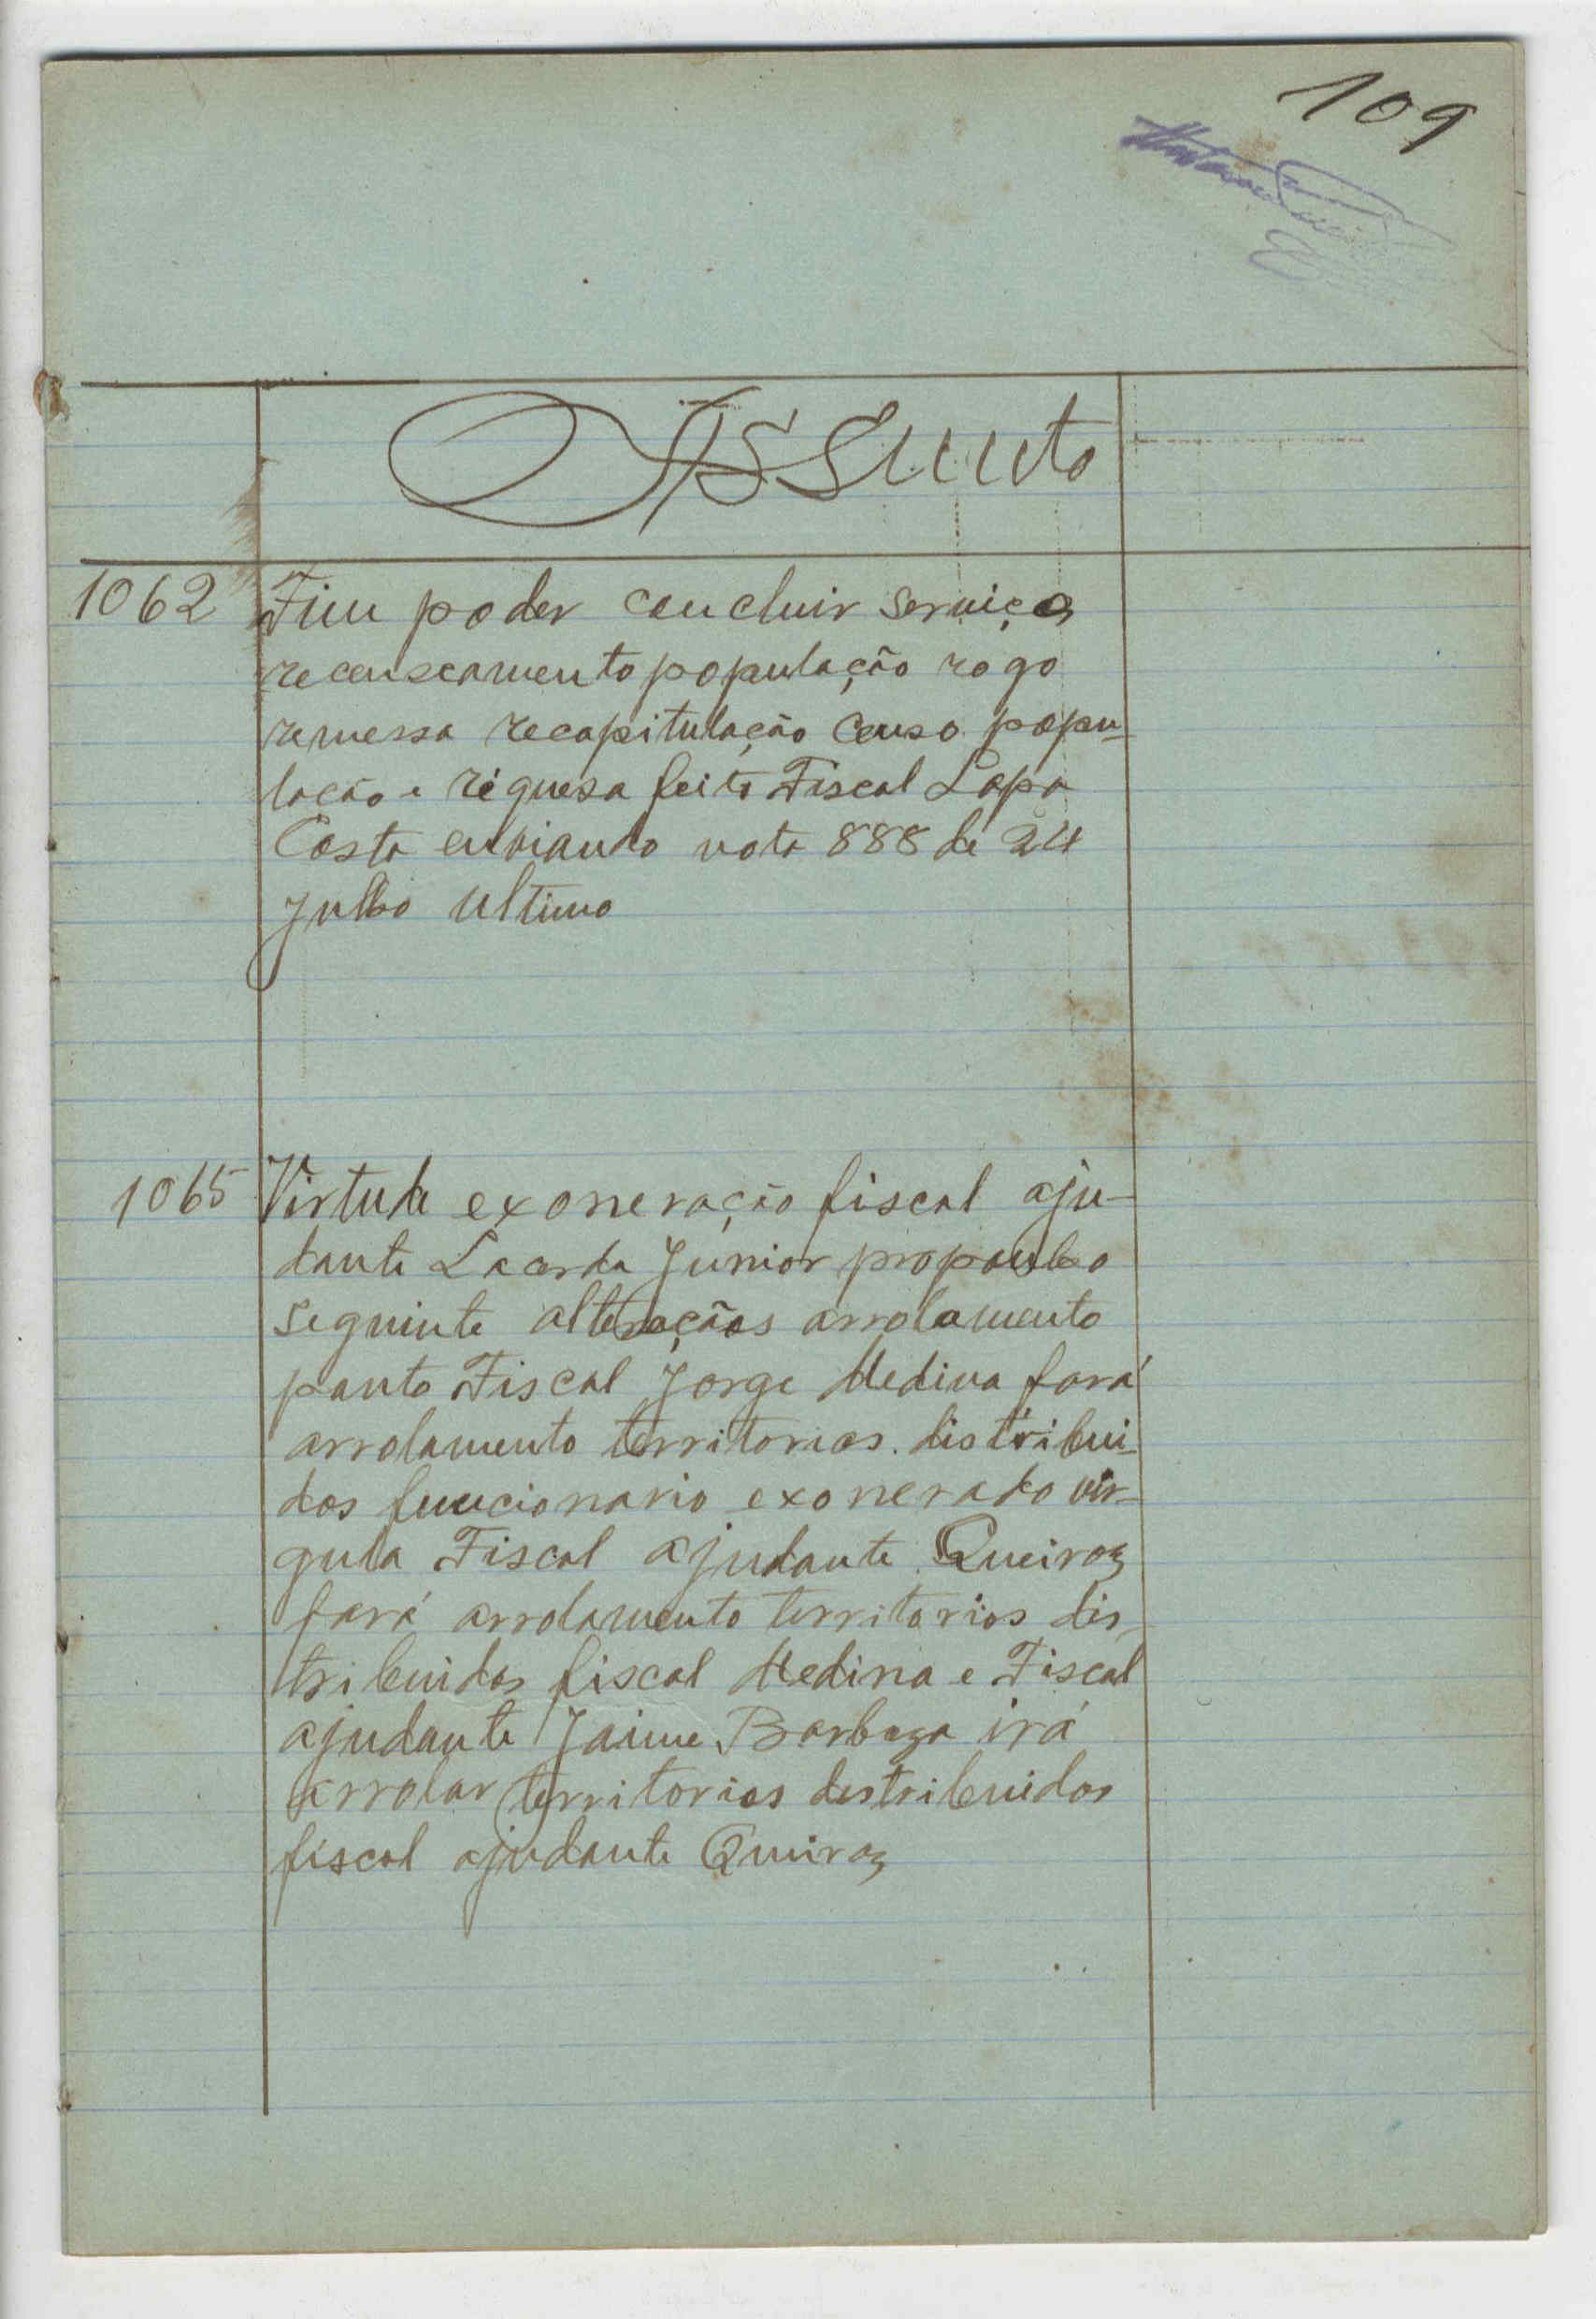 109
Assunto
1062 Fim poder concluir serviço
recenseamento população rogo
remessa recapitulação censo popu-
lação e riquesa feito Fiscal Lapa
Costa enviando nota 888 de 24
Julho ultimo
1065 Virtude exoneração fiscal aju-
dante Lacerda Junior proponho
seguinte alterações arrolamento
ponto Fiscal Jorge Medina fará
arrolamento territorios distribui-
dos funcionario exonerado vir-
gula Fiscal ajudante Queiroz
fará arrolamento territorios dis-
tribuidos fiscal Medina e Fiscal
ajudante Jaime Barboza irá
arrolar territorios destribuidos
fiscal ajudante Queiroz